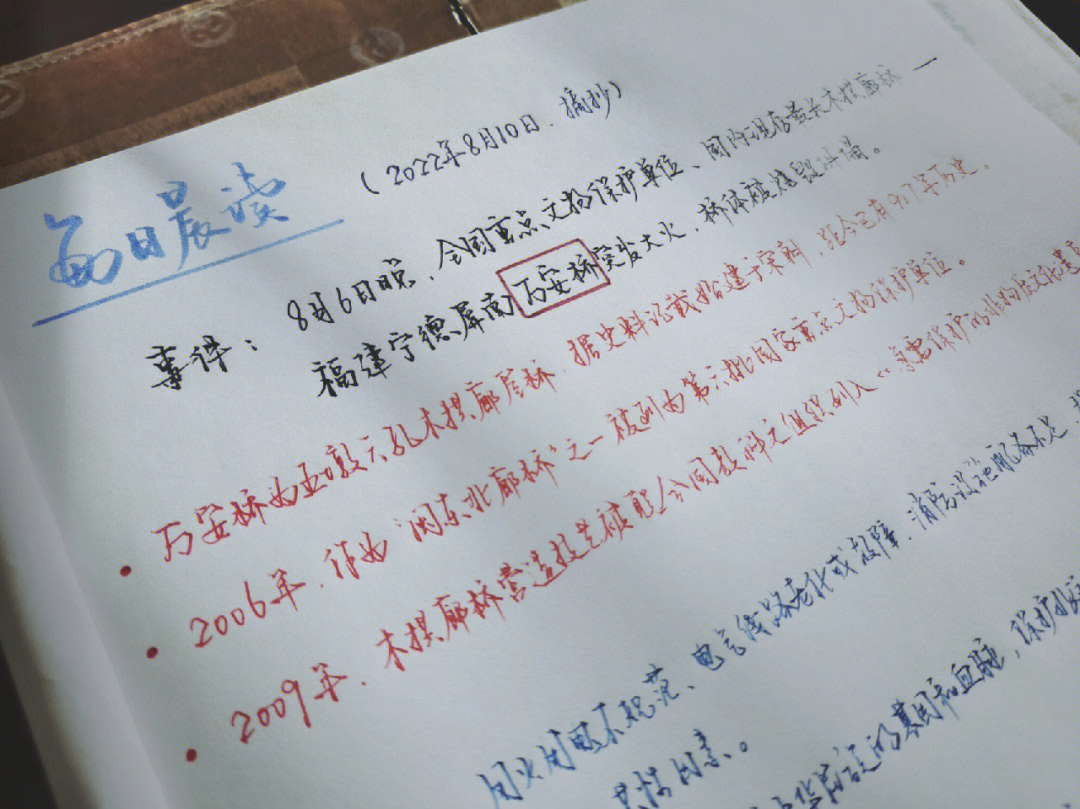 (2022年8月10日.摘抄)
每日晨读
事件: 8月6日晚,全国重点文物保护单位、国内现存最长木拱廊桥—
福建宁德屏南万安桥突发大火,桥体被烧毁坍塌。
• 万安桥为五墩六孔木拱廊屋桥.据史料记载始建于宋朝,距今已有917年历史.
• 2006年.作为"闽东北廊桥"之一被列为第六批国家重点文物保护单位。
• 2009年.木拱廊桥营造技艺被联合国教科文组织列入《急需保护的非物质文化遗
用火用电不规范、电气线路老化或故障.消防设施配备不足,
共性因素。
中华民族的基因和血脉,保护